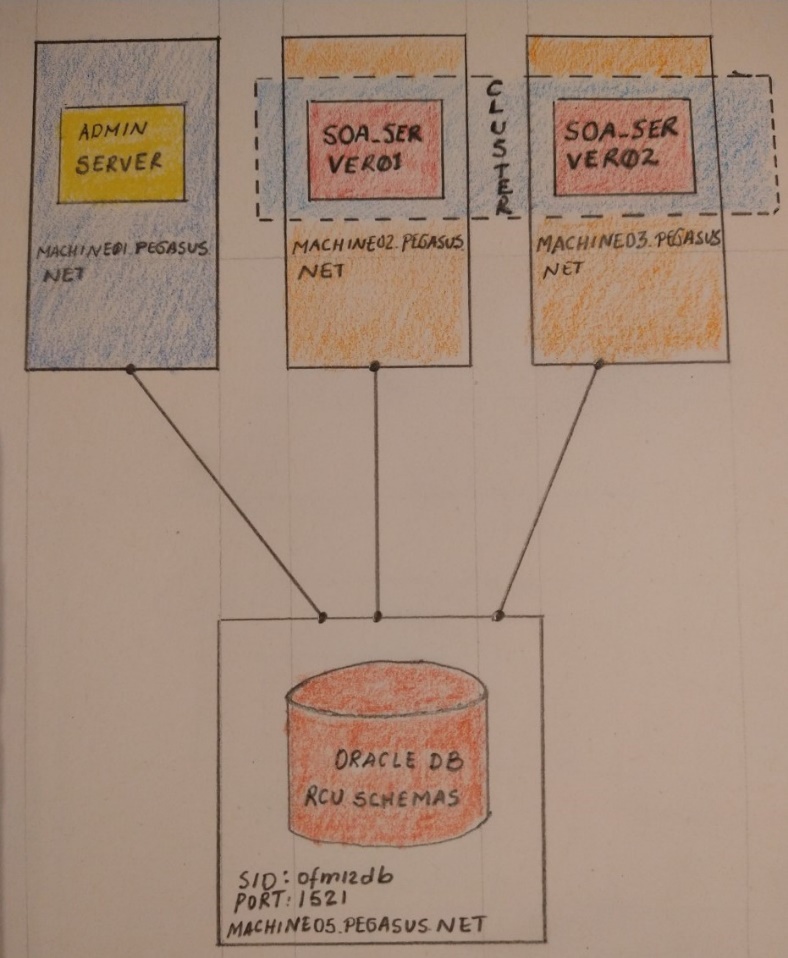 ADMIN
SERVER
MACHINE01.PEGASUS.
NET
SOA_SER
VER01
MACHINE02.PEGASUS.
NET
CLUSTER
SOA_SER
VER02
MACHINE03.PEGASUS
NET
ORACLE DB
RCU SCHEMAS
SID: ofm12db
PORT: 1521
MACHINE05.PEGASUS.NET